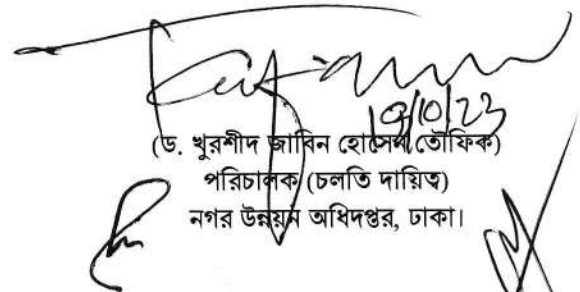 19/10/23
(ড. খুরশীদ জাবিন হোসেন তৌফিক)
পরিচালক (চলতি দায়িত্ব)
নগর উন্নয়ন অধিদপ্তর, ঢাকা।